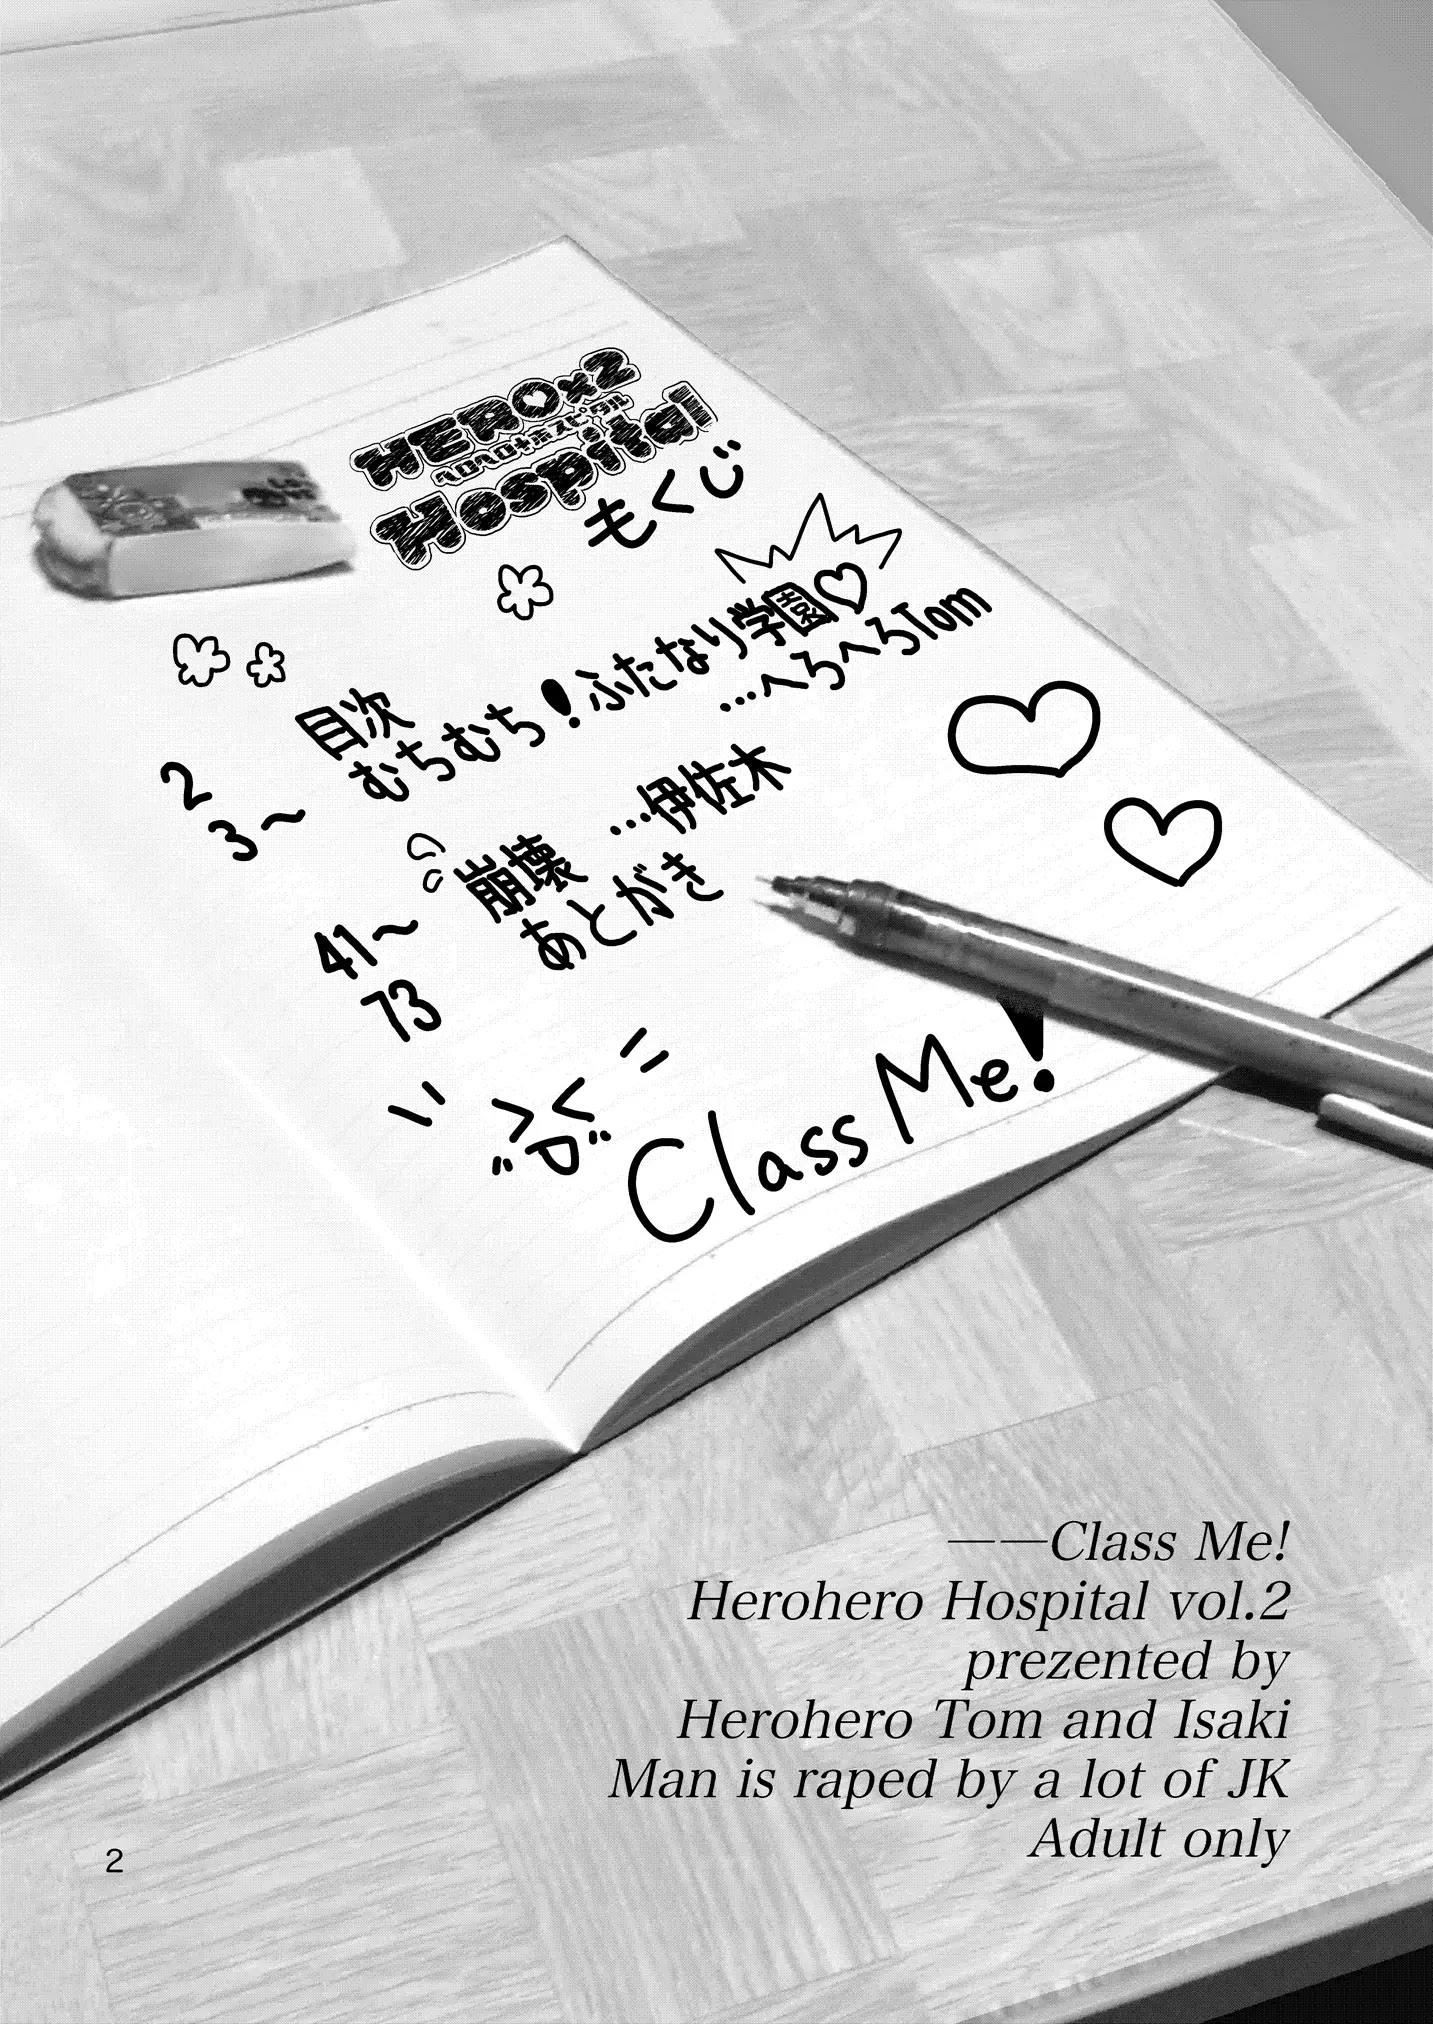 HEROx2
ヘロヘロホスピタル
Hospital
もくじ
2 目次
3〜 むちむち!ふたなり学園♡
…へろへろTom
41〜 崩壊 …伊佐木
73 あとがき
Class Me!
——Class Me!
Herohero Hospital vol.2
prezented by
Herohero Tom and Isaki
Man is raped by a lot of JK
Adult only
2